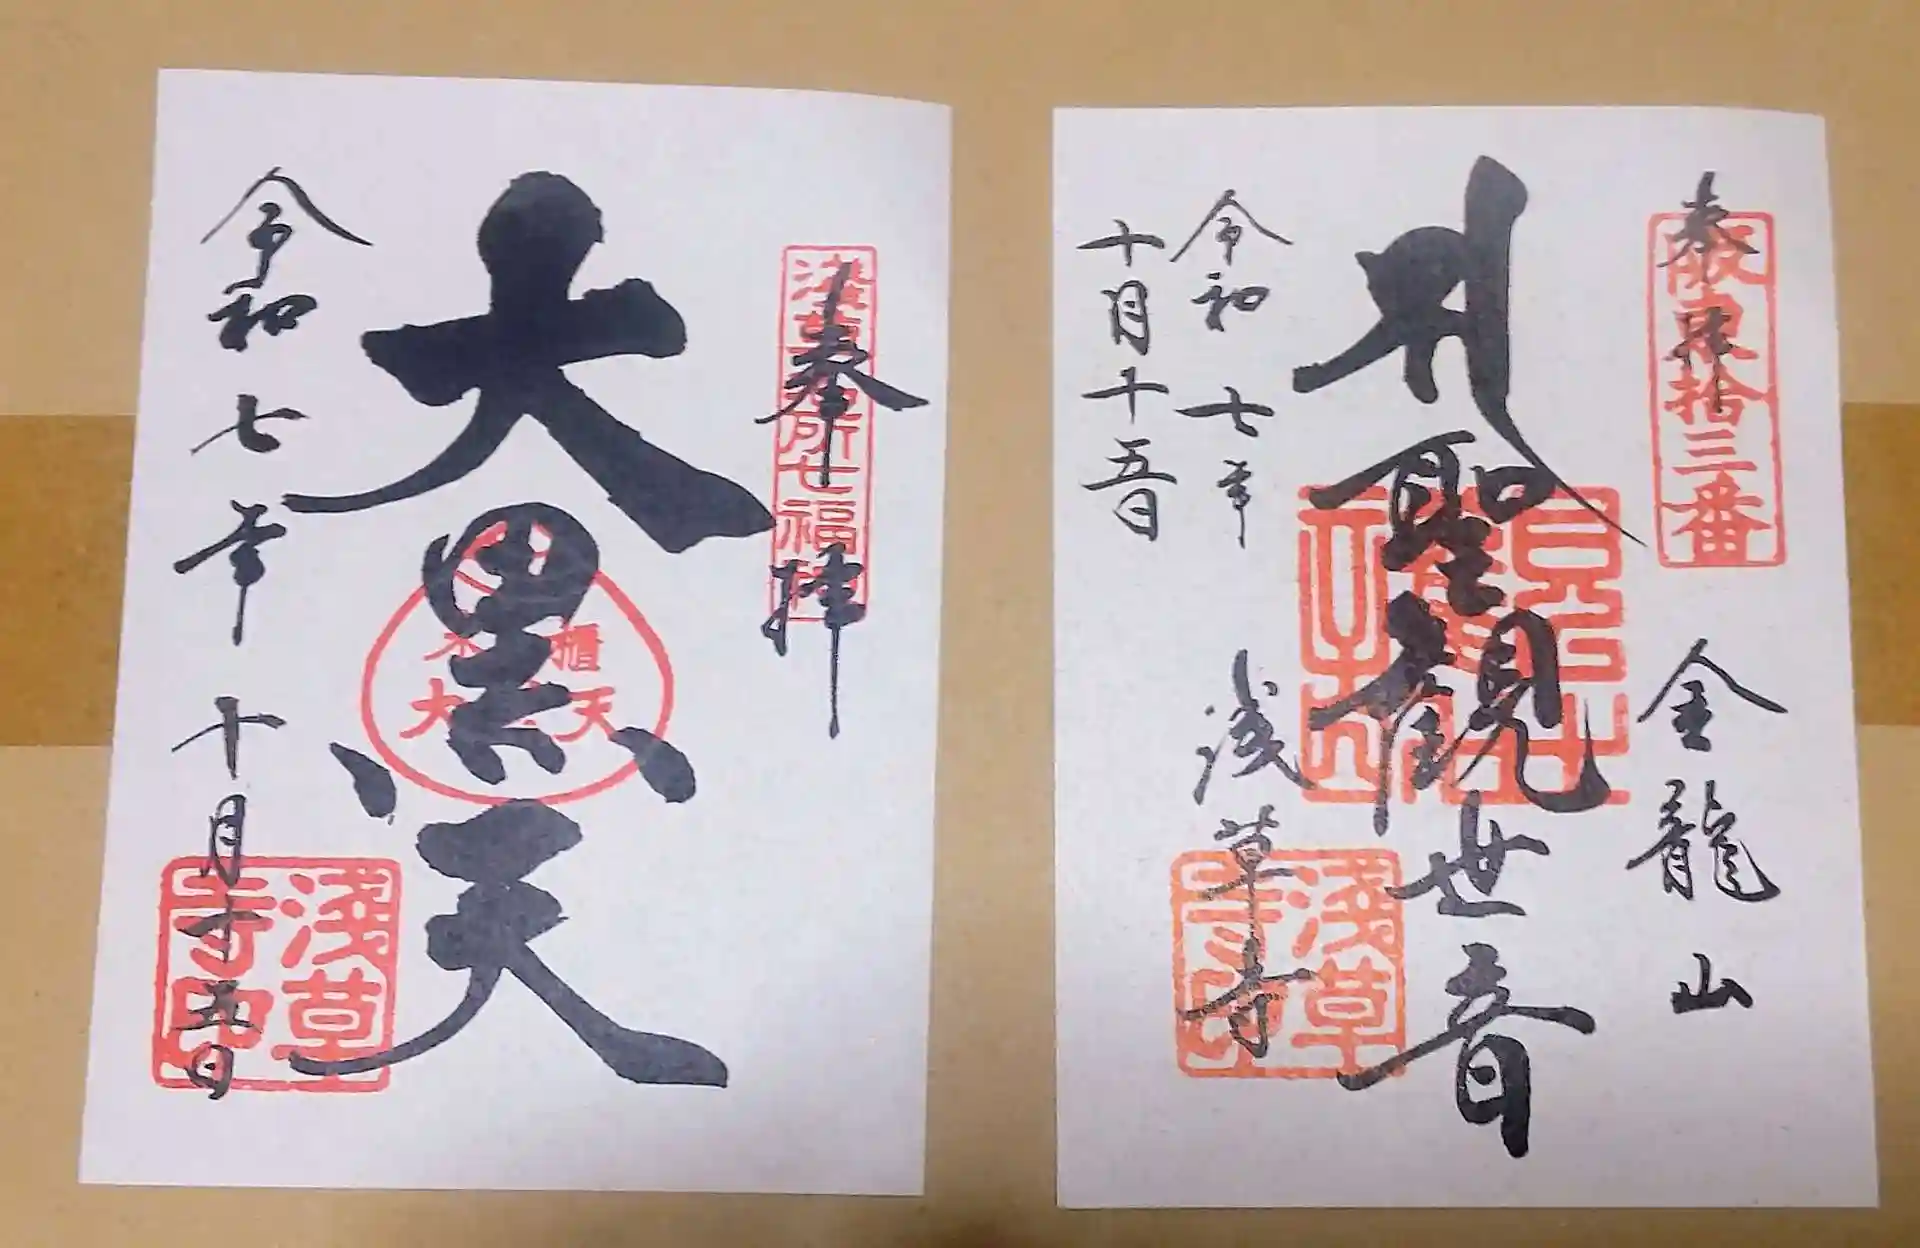 奉拝
浅草名所七福神
大黒天
令和七年十月十五日
浅草
寺印
奉拝
坂東拾三番
金龍山
聖観世音
浅草寺
令和七年
十月十五日
浅草
寺印